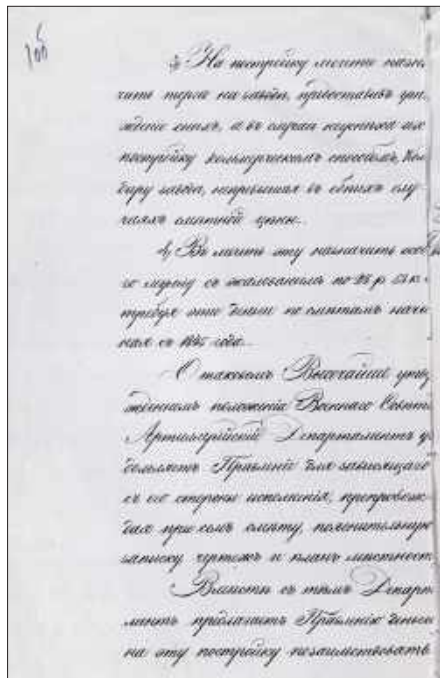 166
3) На постройку мечети назна
чить торги на заводе, предоставив
а в случае неуспеха их
постройку коммерческим способом, Ком
диру завода, непревышая в обоих слу
чаях сметной цены.
4) В мечеть эту назначить особ
го муллу с жалованьем по 85 р.
требуя эти деньги по сметам начи
ная с 1845 года.
О таковом Высочайше утвер
жденном положении Военнаго Совета
Артиллерийский Департамент у
домляет Правление для зависящаго
с его стороны исполнения, препровож
дая при сем смету, пояснительную
записку чертеж и план местност
Вместе с тем Департа
мент предлагает Правлению деньги
на эту постройку позаимствовать